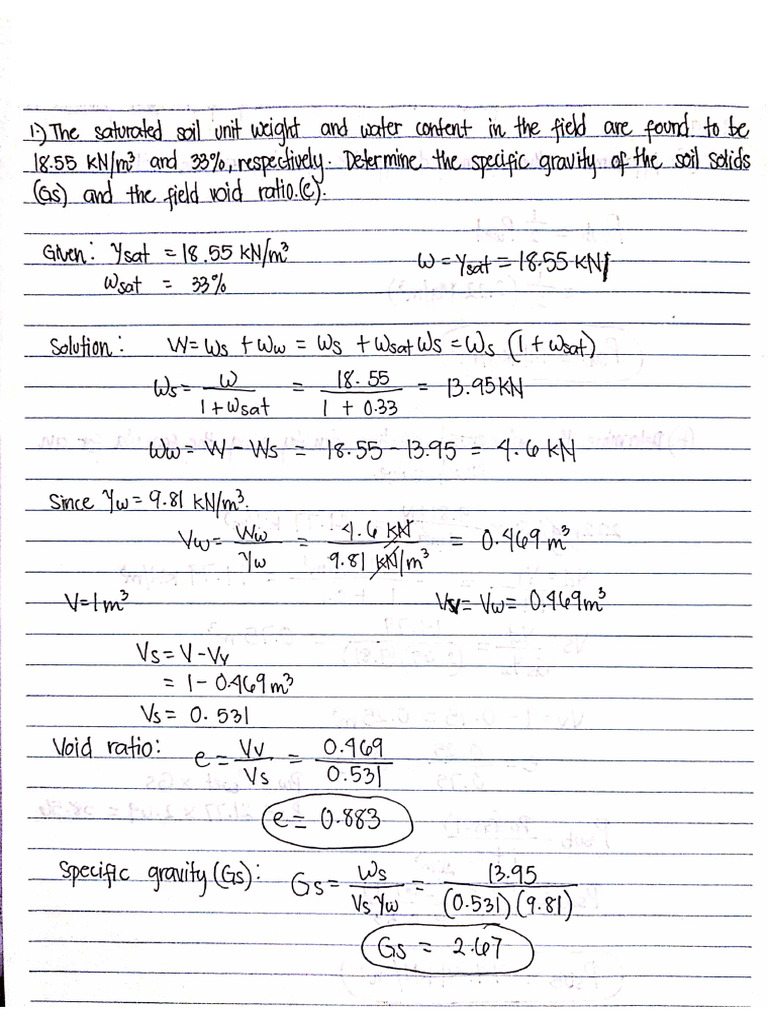 1.) The saturated soil unit weight and water content in the field are found to be
18.55 KN/m³ and 33%, respectively. Determine the specific gravity of the soil solids
(Gs) and the field void ratio.(e).
Given: γsat = 18.55 KN/m³
W = γsat = 18.55 KN
ωsat = 33%
Solution: W = Ws + Ww = Ws + ωsat Ws = Ws (1 + ωsat)
Ws = W / (1 + ωsat) = 18.55 / (1 + 0.33) = 13.95 KN
Ww = W - Ws = 18.55 - 13.95 = 4.6 KN
Since γw = 9.81 KN/m³.
Vw = Ww / γw = 4.6 KN / 9.81 KN/m³ = 0.469 m³
V = 1 m³
Vv = Vw = 0.469 m³
Vs = V - Vv
= 1 - 0.469 m³
Vs = 0.531
Void ratio: e = Vv / Vs = 0.469 / 0.531
e = 0.883
Specific gravity (Gs): Gs = Ws / Vs γw = 13.95 / (0.531)(9.81)
Gs = 2.67